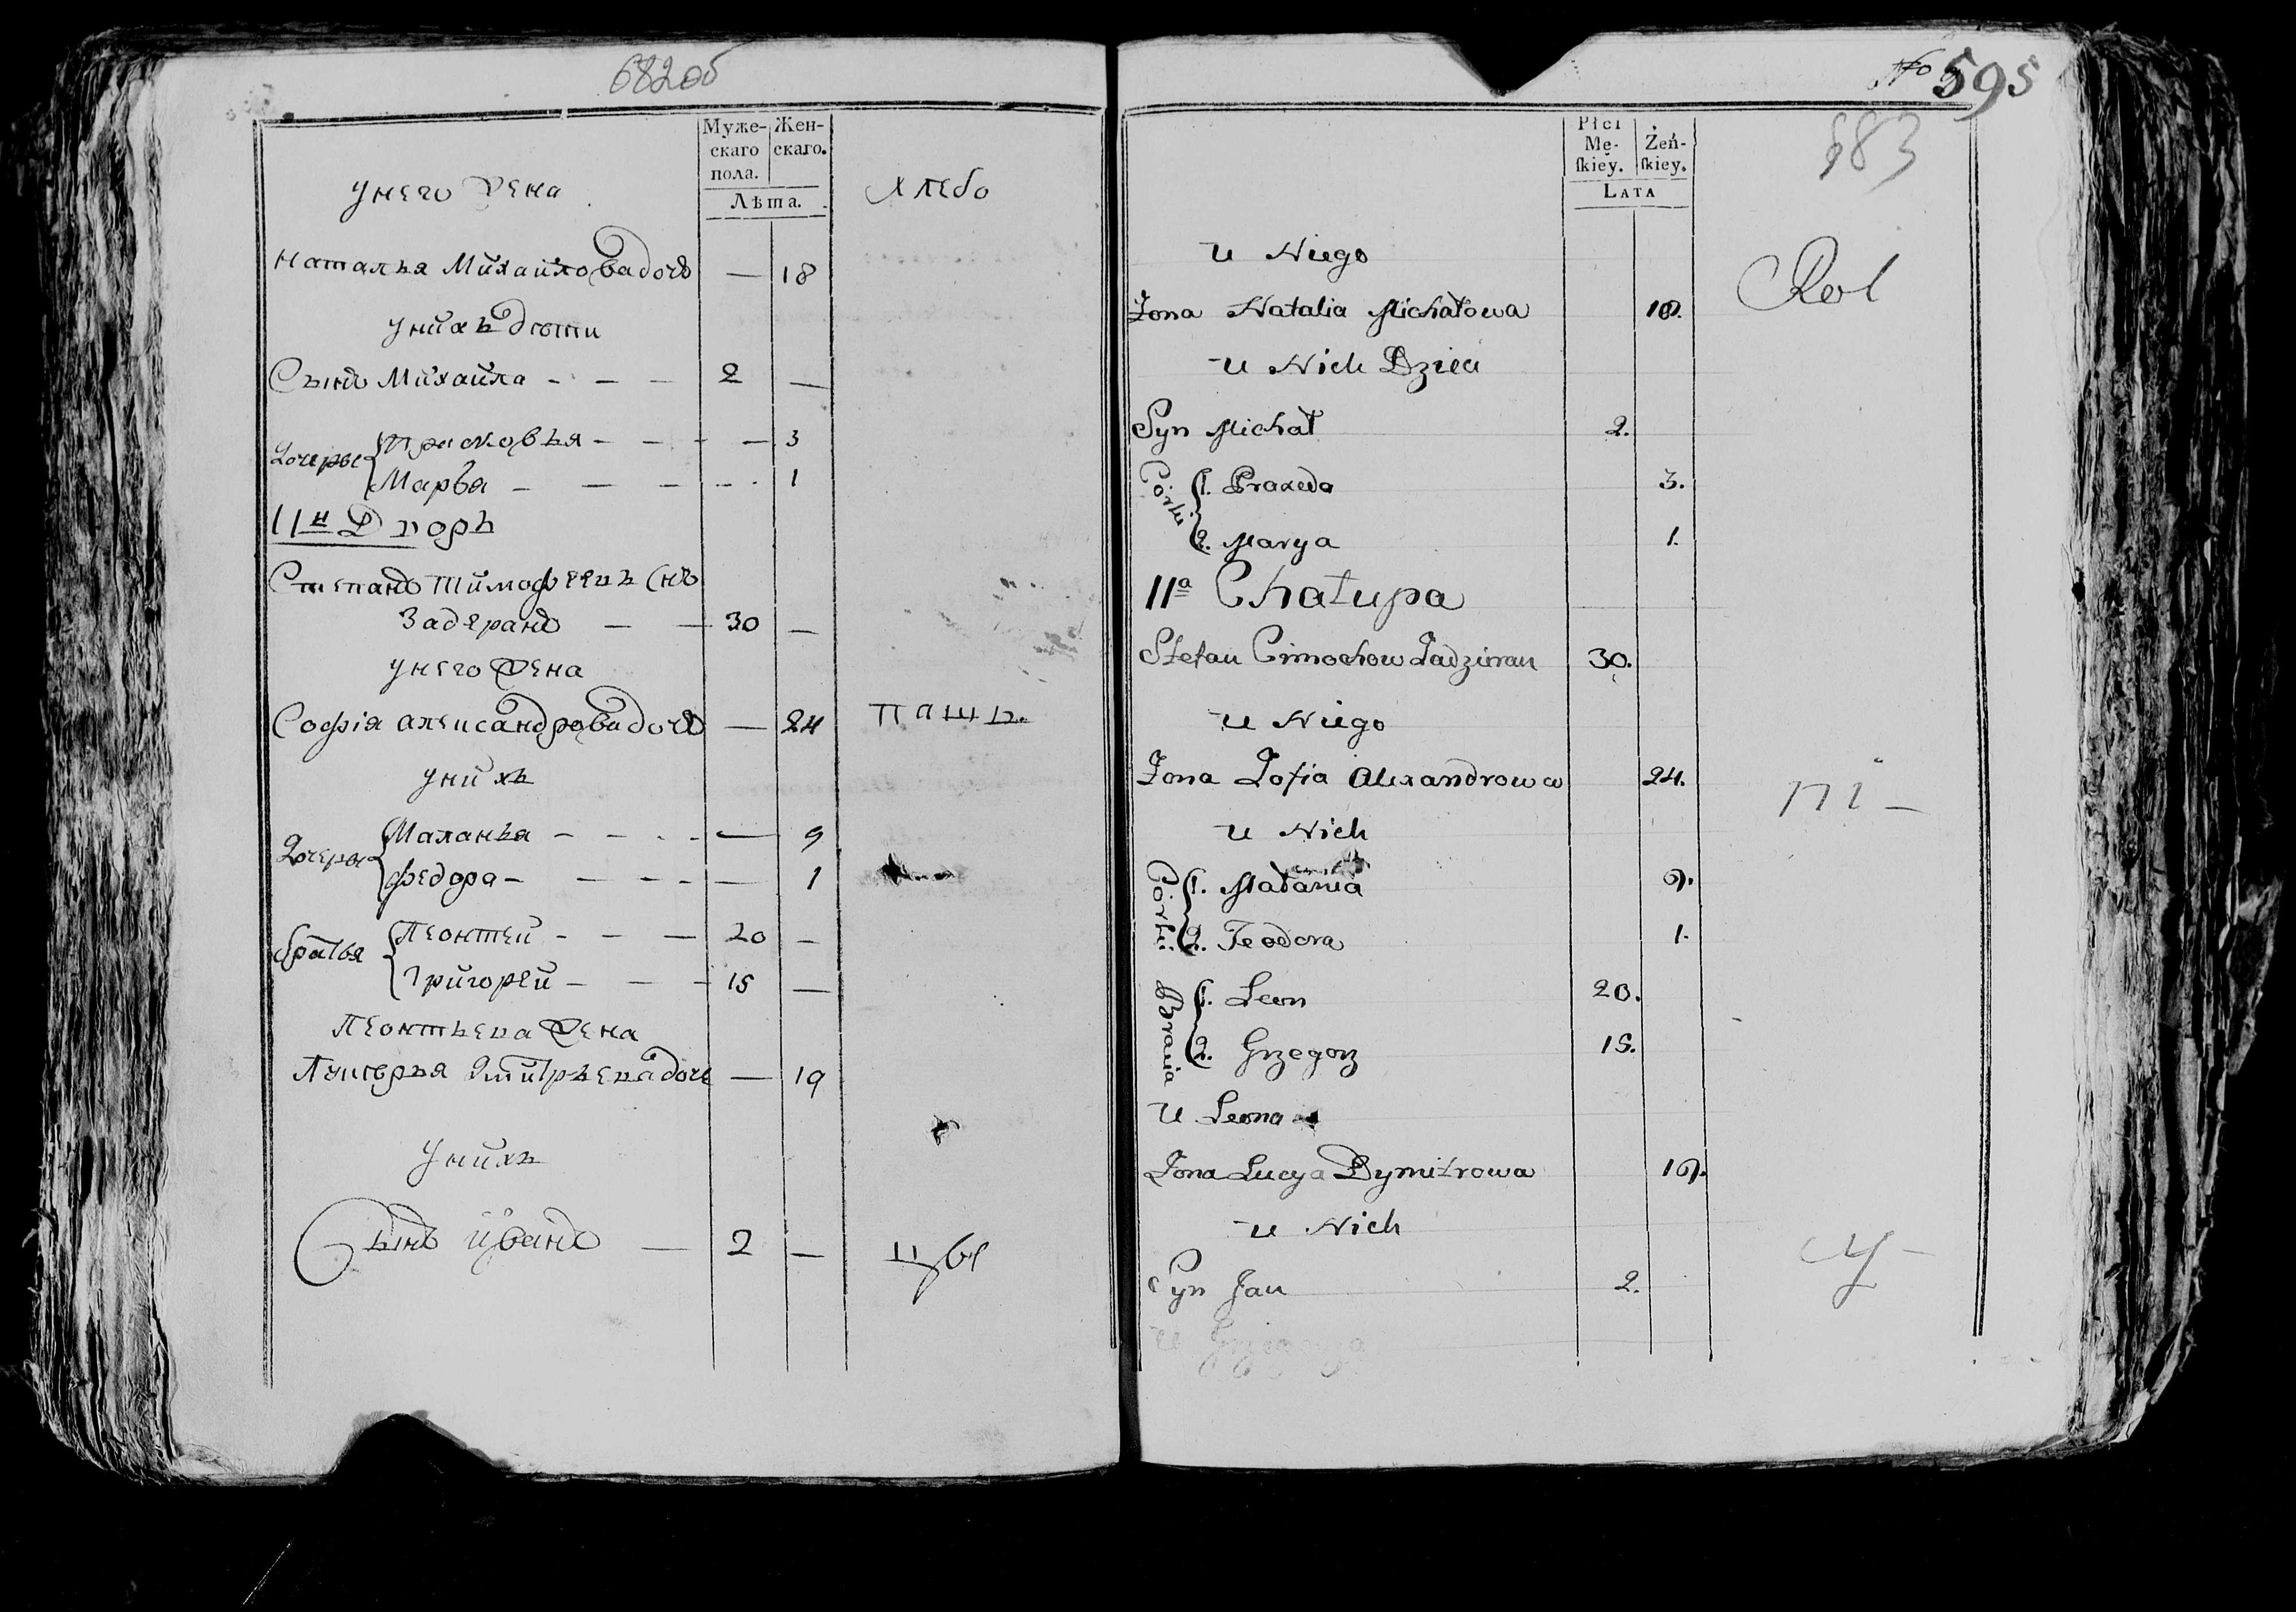 682 об
Муже-
скаго
пола.
Жен-
скаго.
Лѣта.
у него Жена
хлебо
Наталья Михайлова дочь — 18
у нихъ дѣти
Сынъ Михайла - - - 2 —
Дочеры
Прасковья - - - — 3
Марья - - - - 1
11й Дворъ
Степанъ Тимофеевъ Снъ
Задеранъ — — 30 —
у него Жена
Софія Александрова дочь — 24
пашц.
у нихъ
Дочеры
Маланья - - - — 9
Федора - - - — 1
братья
Леонтей - - — 20 —
Григорей - - - 15 —
Леонтьева Жена
Лукерья Дмитрьева дочь — 19
у нихъ
Сынъ Иванъ — 2 —
цы
No 595
683
Płci
Mę-
skiey.
Żeń-
skiey.
Lata
u Niego
Rol
Żona Natalia Michałowa 18.
u Nich Dzieci
Syn Michał 2.
Córki
1. Praxeda 3.
2. Marya 1.
11a Chałupa
Stefan Cimochow Zadzieran 30.
u Niego
Żona Zofia Alexandrowa 24.
ni -
u Nich
Córki
1. Małania 9.
2. Teodora 1.
Bracia
1. Leon 20.
2. Grzegorz 15.
u Leona
Żona Lucya Dymitrowa 19.
u Nich
cy -
Syn Jan 2.